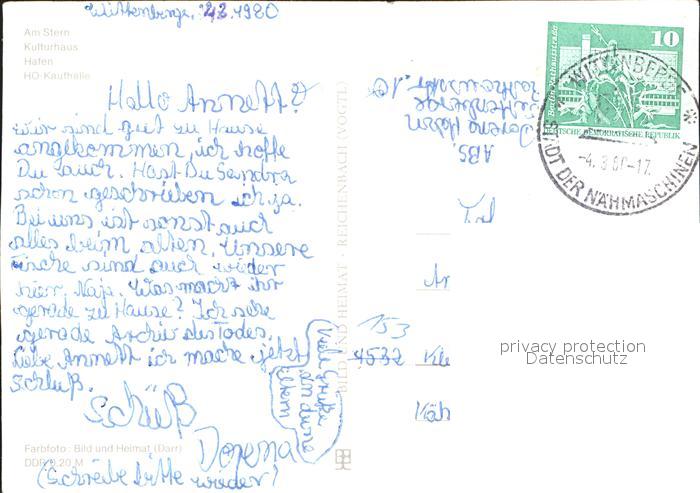 Wittenberge, 1980
Am Stern
Kulturhaus
Hafen
HO-Kaufhalle
Hallo Annett?
wir sind gut zu Hause
angekommen, ich hoffe
Du auch. Hast Du Sandra
schon geschrieben ich ja.
Bei uns ist sonst auch
alles beim alten. Unsere
sind auch wieder
hier, Naja. Was macht ihr
gerade zu Hause? Ich sehe
gerade Archiv des Todes.
Liebe Annett ich mache jetzt
Schluß.
Viele Grüße
an deine
Eltern
Schüß
Dorena
(Schreibe bitte wieder!
Farbfoto: Bild und Heimat (Darr)
DDR 0,20 M
BILD UND HEIMAT · REICHENBACH (VOGTL)
ABS.
Wittenberge
10
Berlin, Rathausstraße
DEUTSCHE DEMOKRATISCHE REPUBLIK
WITTENBERGE
-4.3.80-17
STADT DER NÄHMASCHINEN
153
4532
privacy protection
Datenschutz